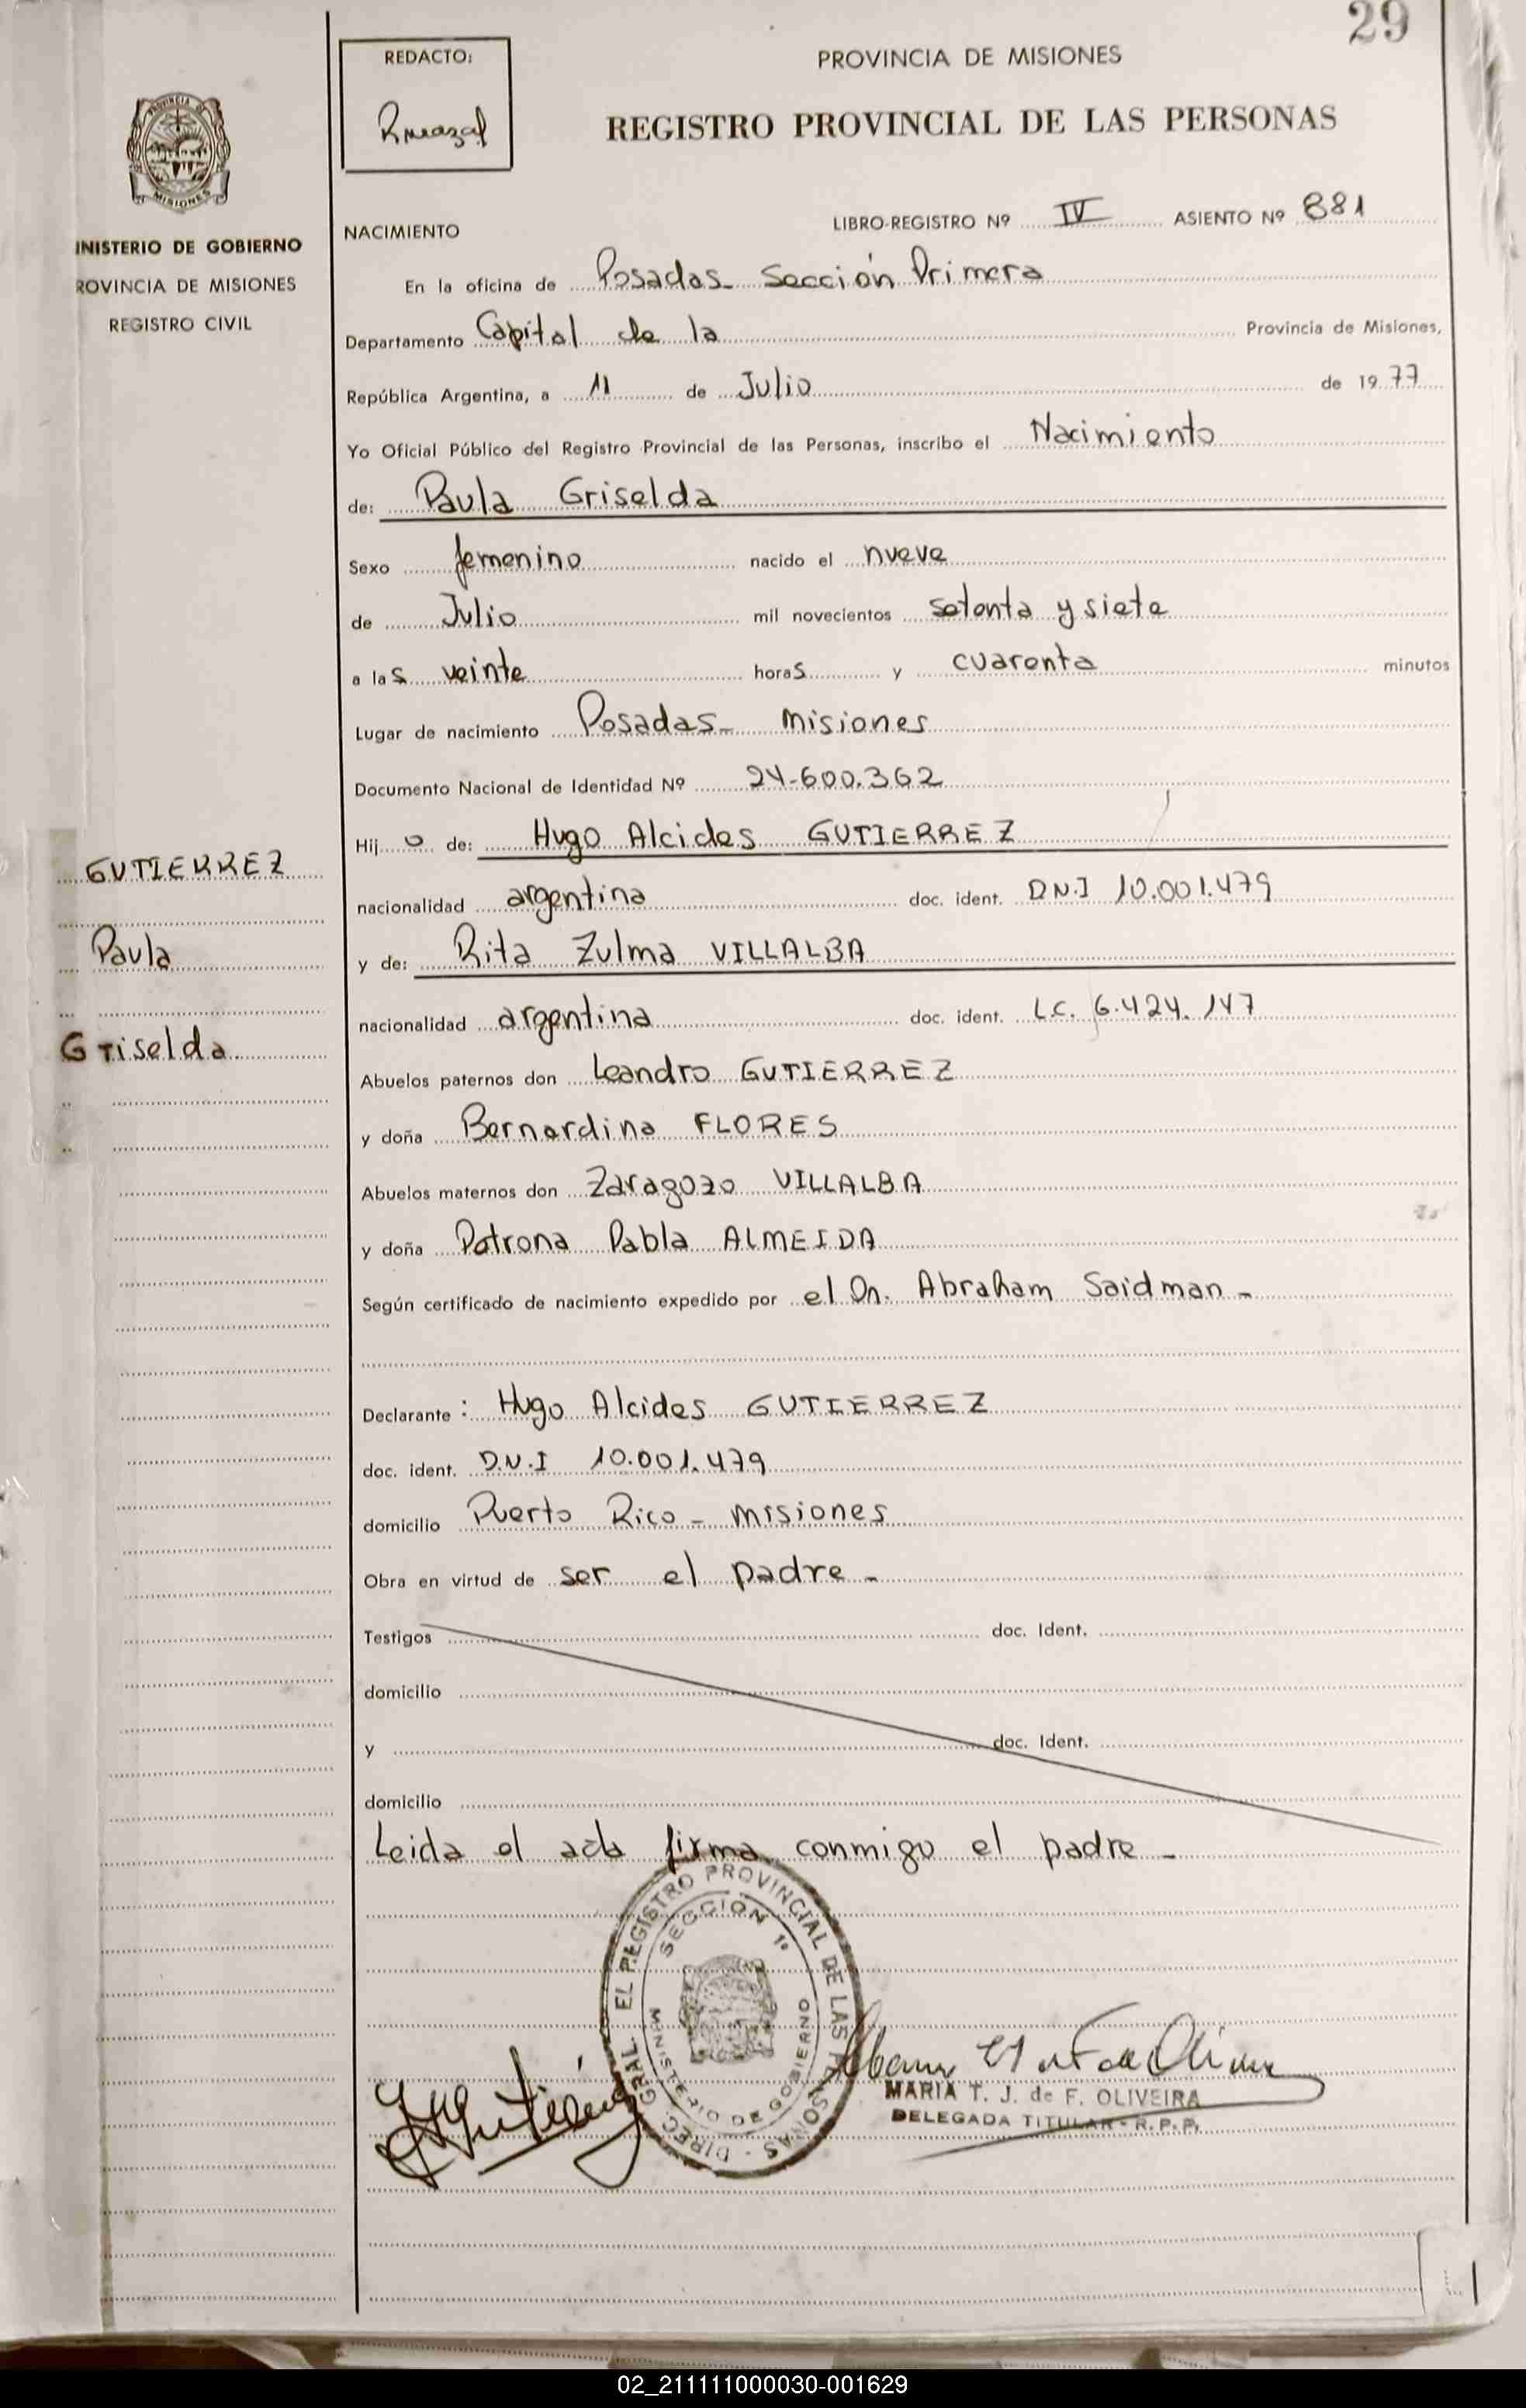 29
REDACTO:
PROVINCIA DE MISIONES
REGISTRO PROVINCIAL DE LAS PERSONAS
PROVINCIA DE
MISIONES
INISTERIO DE GOBIERNO
ROVINCIA DE MISIONES
REGISTRO CIVIL
LIBRO-REGISTRO Nº IV ASIENTO Nº 881
NACIMIENTO
En la oficina de Posadas- Sección Primera
Departamento Capital de la Provincia de Misiones,
República Argentina, a 11 de Julio de 1977
Yo Oficial Público del Registro Provincial de las Personas, inscribo el Nacimiento
de: Paula Griselda
Sexo femenino nacido el nueve
de Julio mil novecientos setenta y siete
a las veinte horas y cuarenta minutos
Lugar de nacimiento Posadas- Misiones
Documento Nacional de Identidad Nº 24-600.362
Hij o de: Hugo Alcides GUTIERREZ
nacionalidad argentina doc. ident. D.N.I 10.001.479
y de: Rita Zulma VILLALBA
nacionalidad argentina doc. ident. L.C. 6.424.147
Abuelos paternos don Leandro GUTIERREZ
y doña Bernardina FLORES
Abuelos maternos don Zaragozo VILLALBA
y doña Petrona Pabla ALMEIDA
Según certificado de nacimiento expedido por el Dr. Abraham Saidman -
Declarante : Hugo Alcides GUTIERREZ
doc. ident. D.N.I 10.001.479
domicilio Puerto Rico - Misiones
Obra en virtud de ser el padre -
Testigos doc. Ident.
domicilio
y doc. Ident.
domicilio
Leida el acta firma conmigo el padre -
GUTIERREZ
Paula
Griselda
DIREC. GRAL. EL REGISTRO PROVINCIAL DE LAS PERSONAS
SECCION 1º
MINISTERIO DE GOBIERNO
MARIA T. J. de F. OLIVEIRA
DELEGADA TITULAR - R.P.P.
02_211111000030-001629